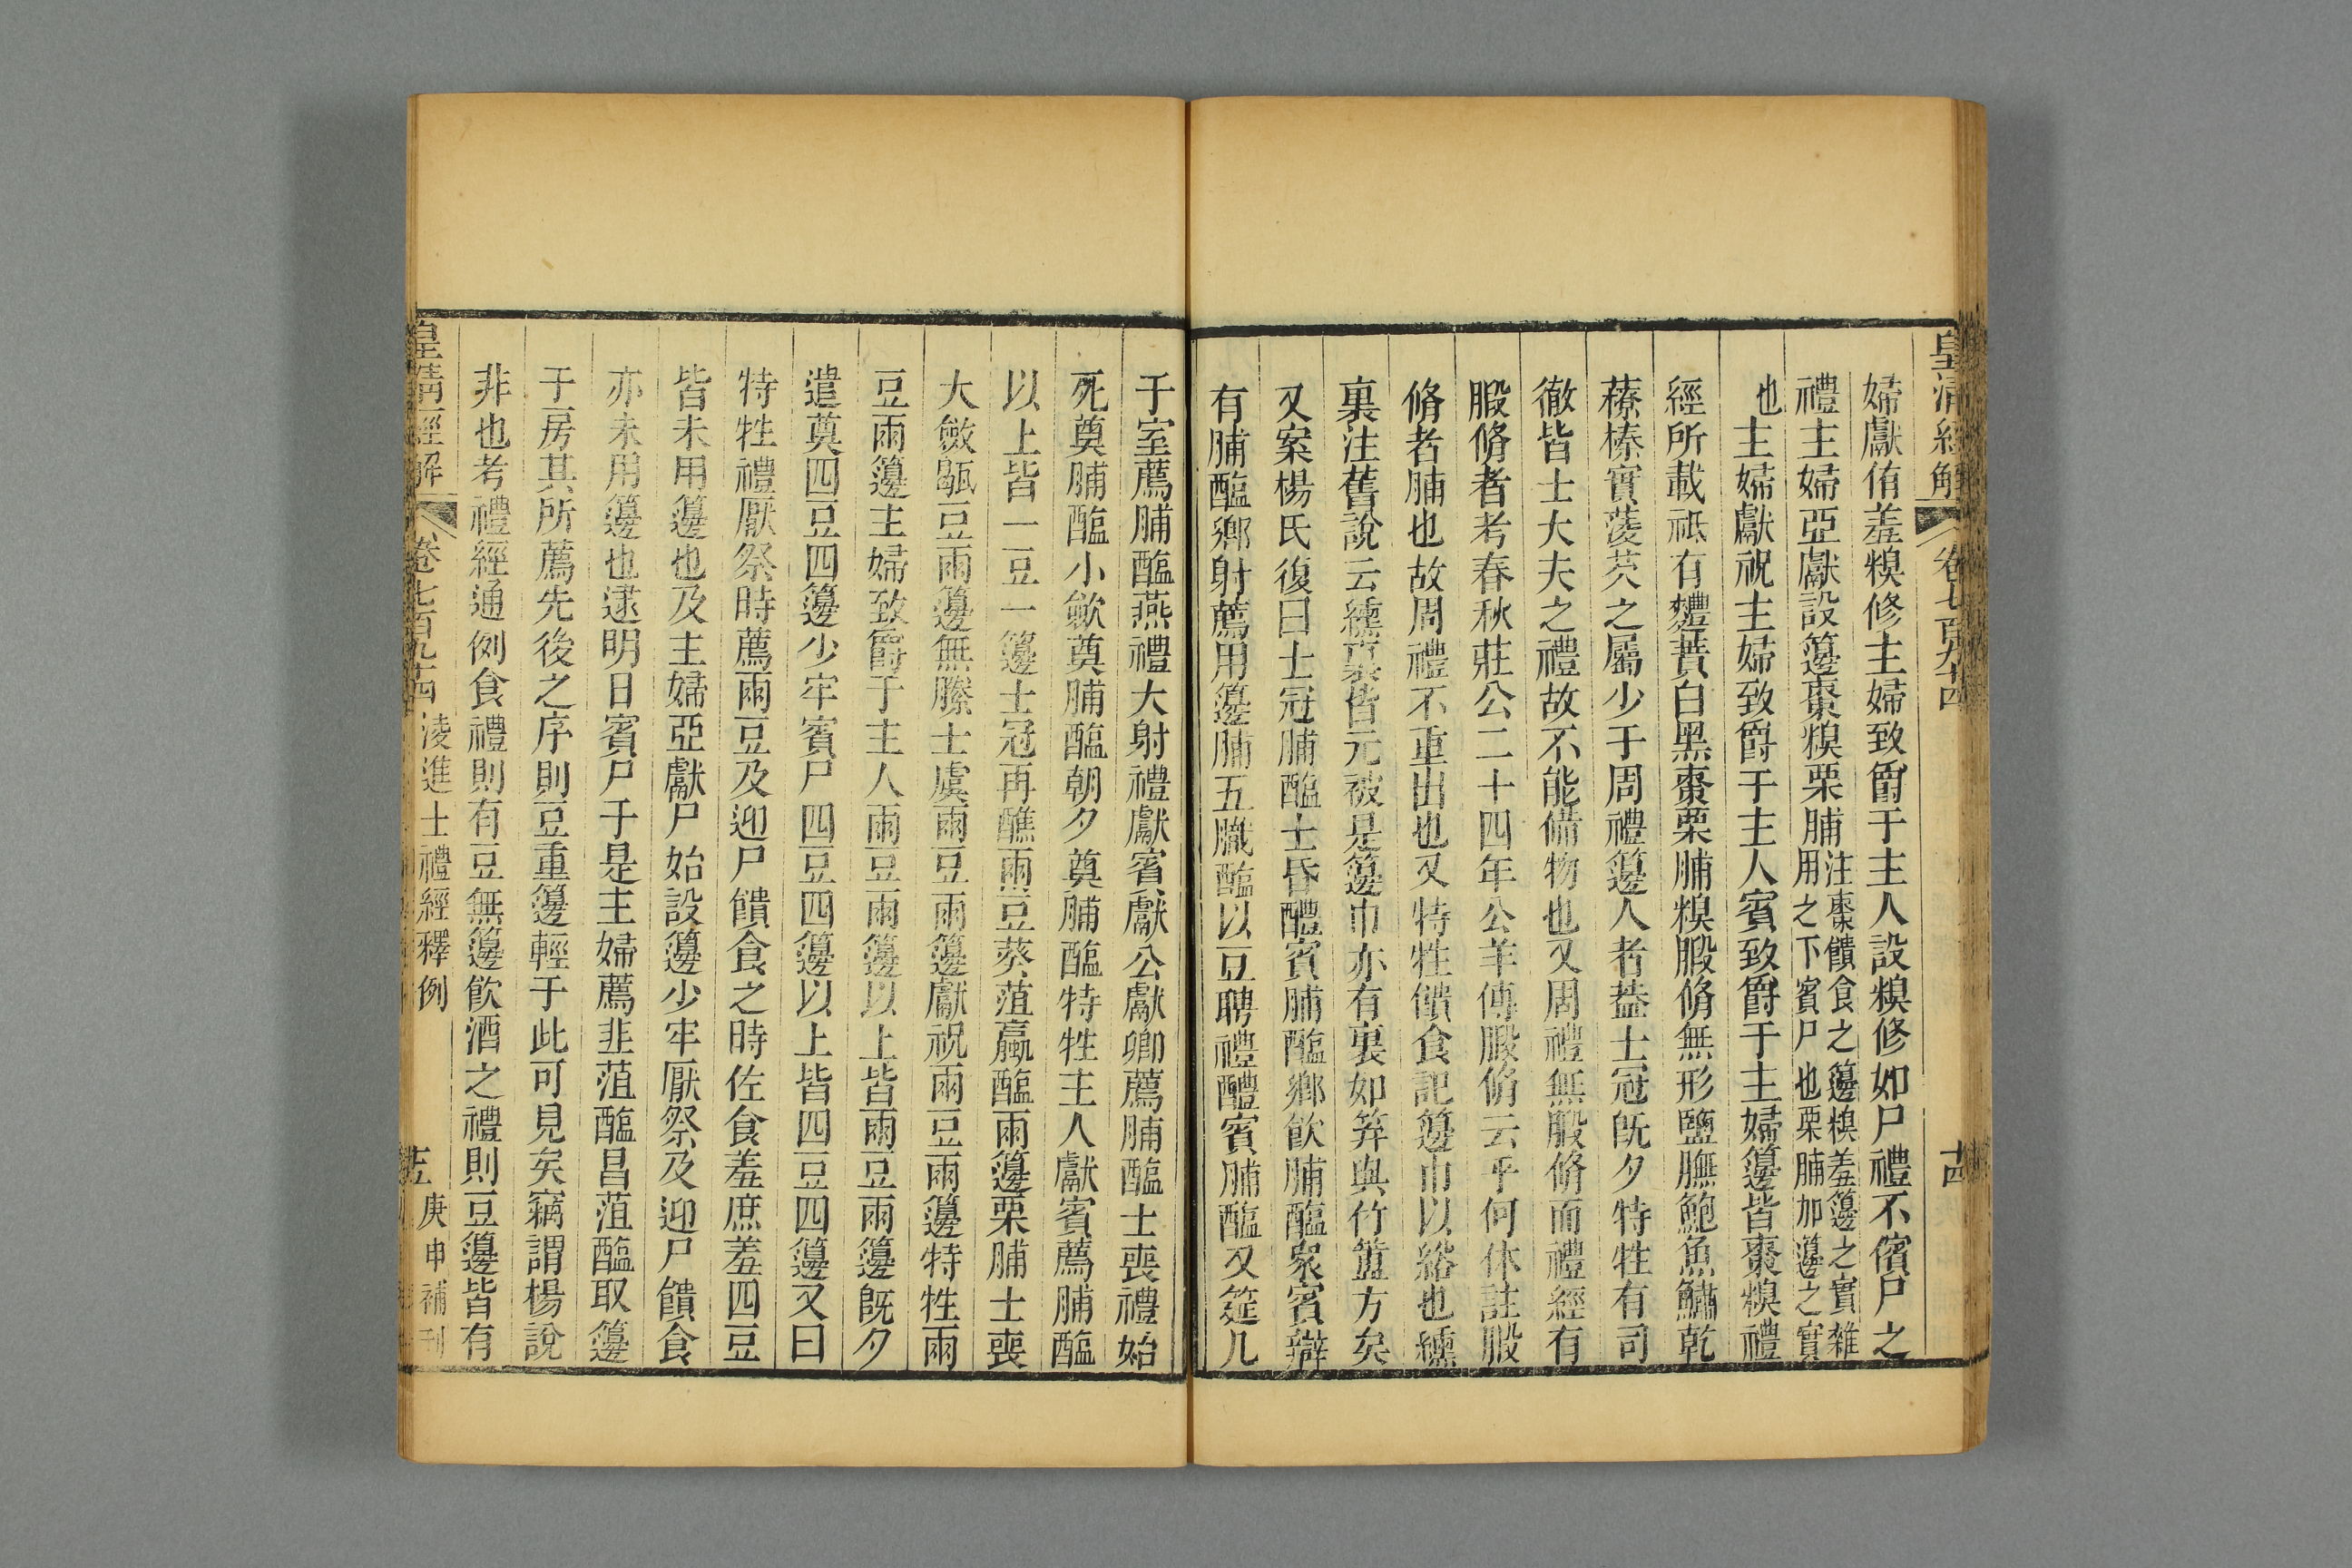 皇清經解 卷七百九十四 十四
婦獻侑羞糗修主婦致爵于主人設糗修如尸禮不儐尸之
禮主婦亞獻設籩棗糗栗脯注棗饋食之籩糗羞籩之實雜用之下賓尸也栗脯加籩之實
也主婦獻祝主婦致爵于主人賓致爵于主婦籩皆棗糗禮
經所載祗有麷蕡白黑棗栗脯糗腶脩無形鹽膴鮑魚鱐乾
䕩榛實蔆芡之屬少于周禮籩人者葢士冠旣夕特牲有司
徹皆士大夫之禮故不能備物也又周禮無腶脩而禮經有
腶脩者考春秋莊公二十四年公羊傳腶脩云乎何休註腶
脩者脯也故周禮不重出也又特牲饋食記籩巾以綌也纁
裏注舊說云纁裏皆元被是籩巾亦有裏如筓與竹簠方矣
又案楊氏復曰士冠脯醢士昏醴賓脯醢鄉飮脯醢衆賓辯
有脯醢鄉射薦用籩脯五膱醢以豆聘禮醴賓脯醢又筵几
于室薦脯醢燕禮大射禮獻賓獻公獻卿薦脯醢士喪禮始
死奠脯醢小歛奠脯醢朝夕奠脯醢特牲主人獻賓薦脯醢
以上皆一豆一籩士冠再醮兩豆葵菹蠃醢兩籩栗脯士喪
大斂毷豆兩籩無縢士虞兩豆兩籩獻祝兩豆兩籩特牲兩
豆兩籩主婦致爵于主人兩豆兩籩以上皆兩豆兩籩旣夕
遣奠四豆四籩少牢賓尸四豆四籩以上皆四豆四籩又曰
特牲禮厭祭時薦兩豆及迎尸饋食之時佐食羞庶羞四豆
皆未用籩也及主婦亞獻尸始設籩少牢厭祭及迎尸饋食
亦未用籩也逮明日賓尸于是主婦薦韭菹醢昌菹醢取籩
于房其所薦先後之序則豆重籩輕于此可見矣竊謂楊說
非也考禮經通例食禮則有豆無籩飮酒之禮則豆籩皆有
皇清經解 卷七百九十四 淩進士禮經釋例 十五 庚申補刊